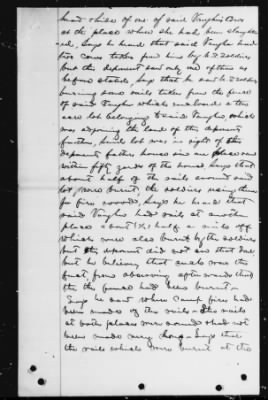 head & hide of one of said Vaughn's Cows
at the place where she had been slaughter
ed, Says he heard that said Vaughn had
two Cows taken from him by U.S. Soldiers
but this deponent saw only one of them as
before stated, Says that he saw U.S. Soldiers
burning some rails taken from the fence
of said Vaughn which enclosed a two
acre lot belonging to said Vaughn, which
was adjoining the land of this deponents
father, said lot was in sight of this
deponents fathers house
within fifty yards of the house, Says that
about half of the rails around said
lot, were burnt, the soldiers using them
for fire wood, Says he heard that
said Vaughn had rails at another
place about (½) half a miles off
which were also burnt by the soldiers
but this deponent did not see that done
but he believes that such was the
fact, from observing afterwards that
the fence had been burnt -
Says he saw where Camp fires had
been made of the rails - the rails
at both places were sound & had not
been made very long - Says that
the rails which were burnt at the